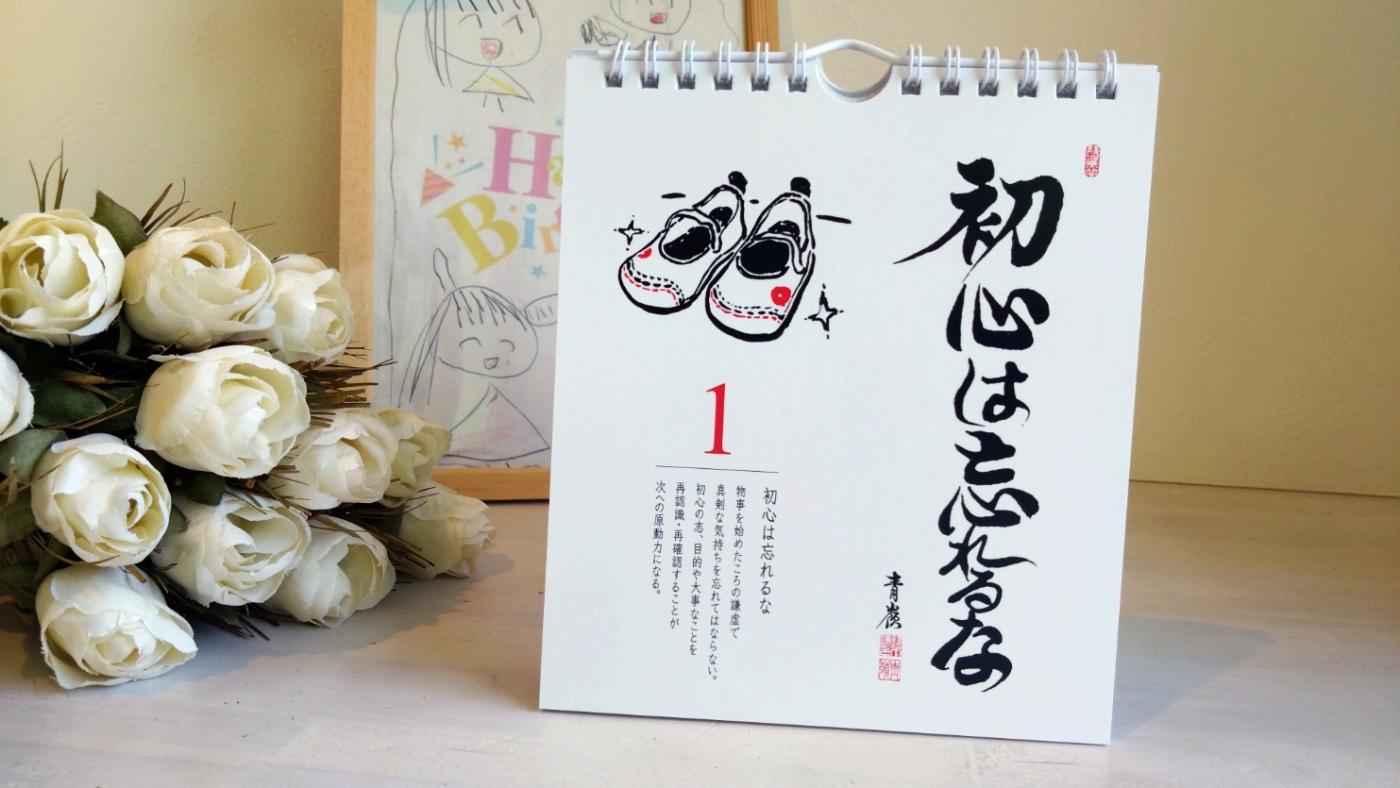 初心は忘れるな
青嶺
1
初心は忘れるな
物事を始めたころの謙虚で
真剣な気持ちを忘れてはならない。
初心の志、目的や大事なことを
再認識・再確認することが
次への原動力になる。